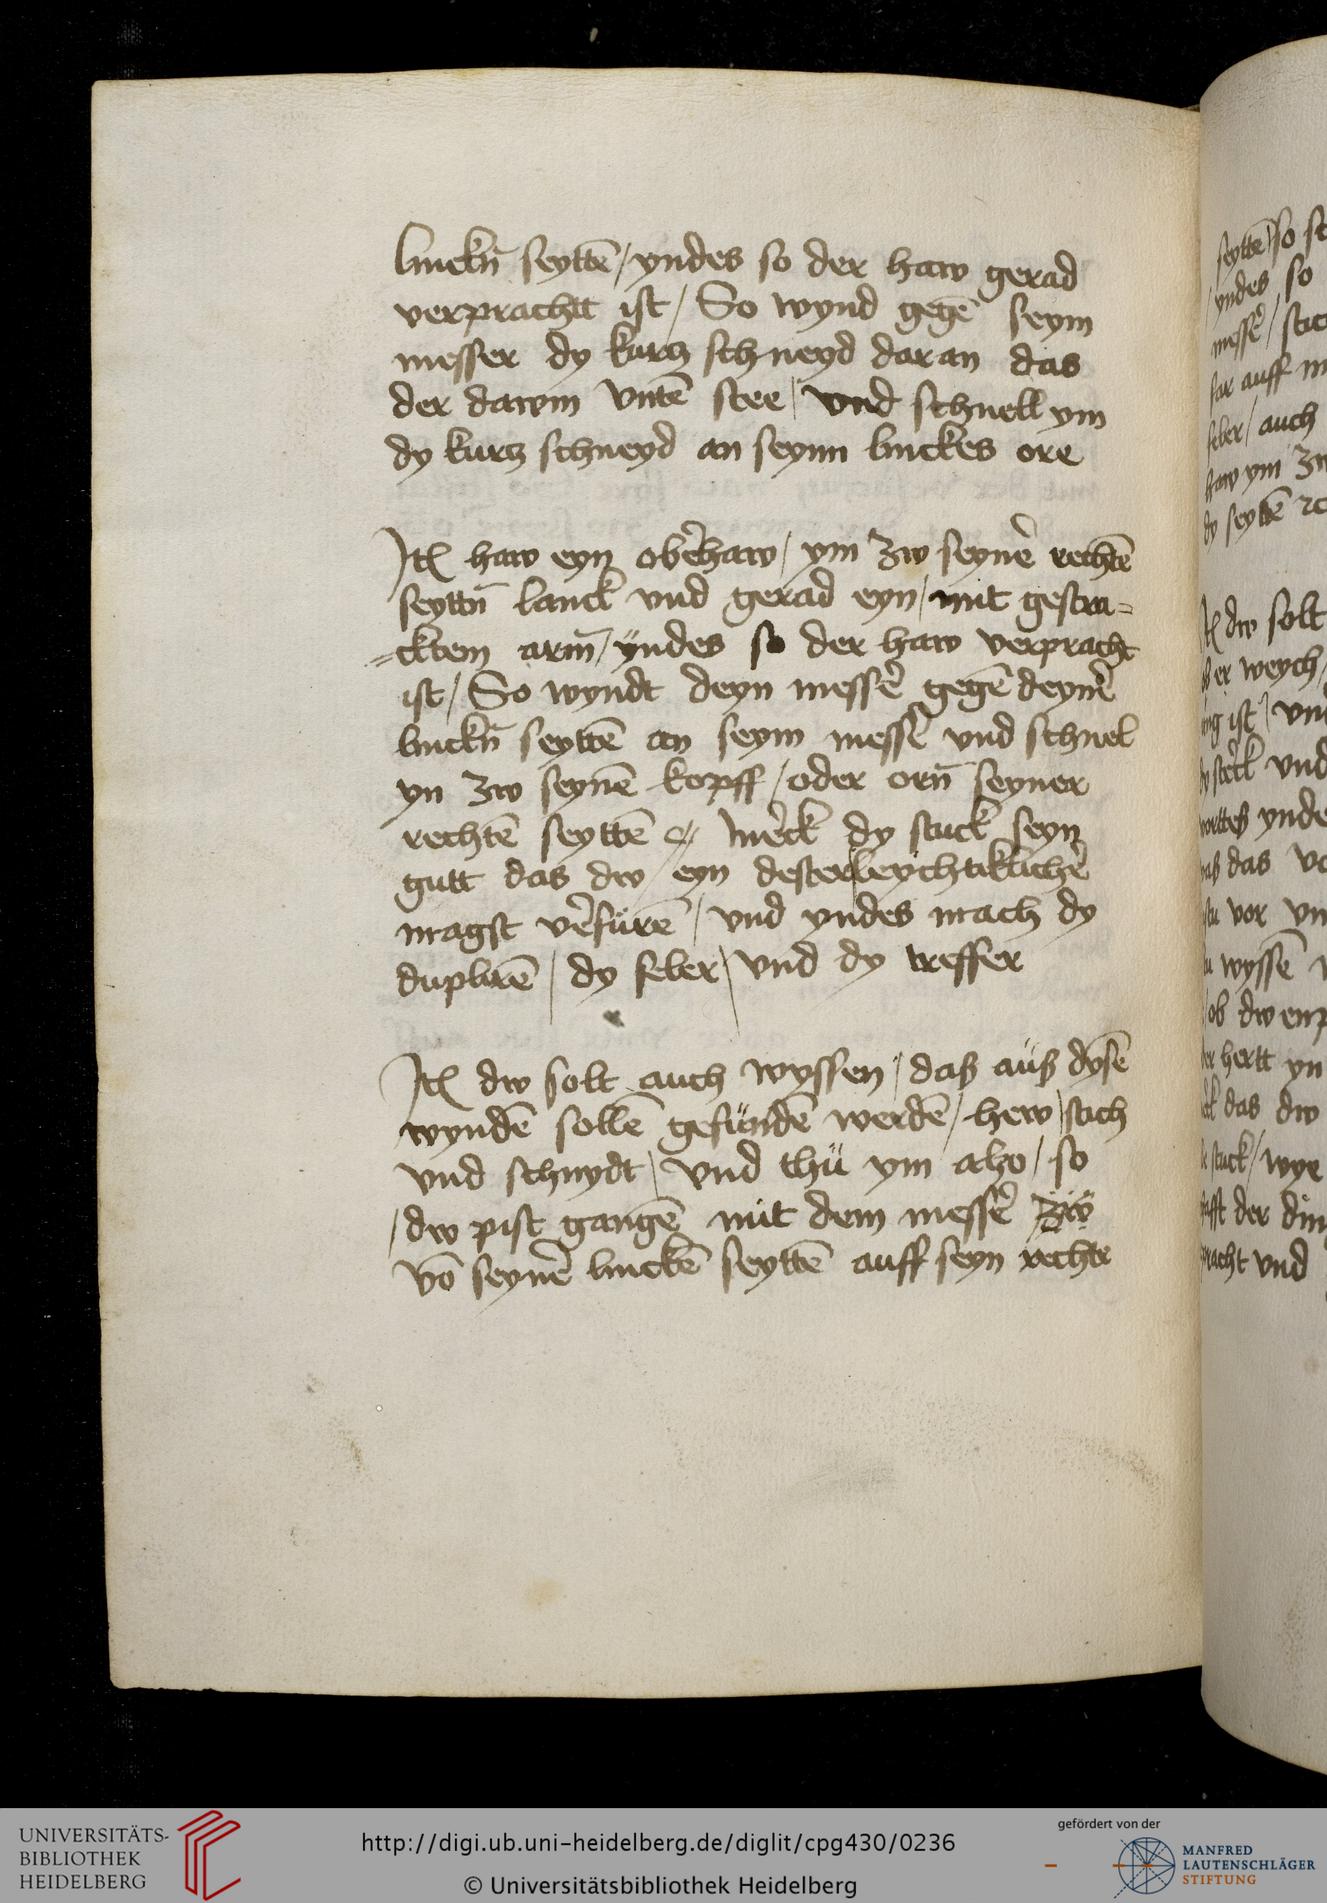 linckn̄ seyttē / yndes so der haw gerad
verprachtt ist / So wynd gegē seym
messer dy kurtz schneyd daran das
der dawm vntē stee / vnd schnell ym
dy kurtz schneyd an seynn linckes ore
Itē haw eyn obe͛haw / ym zw seyne͛ rechtē
seyttn̄ lanck vnd gerad eyn / mit gestra=
=cktem arm̄ / yndes so der haw verpracht
ist / So wyndt deyn messe͛ gegē deyne͛
linckn̄ seyttē an seym messe͛ vnd schnel
yn zw seynē kopff / oder orn̄ seyner
rechtē seyttē me͛ck dy stuck seyn
gutt das dw / eyn dester leychtikliche͛
magst ve͛fürē / vnd yndes mach dy
duplirē / dy feler / vnd dy treffer
Itē dw solt auch wyssen / daß auß dysē
wyndē sollē gefündē werdē / hew / stich
vnd schnydt / vnd thü ym also / so
/ dw pist gangē mit dem messe͛ zw
vō seyne͛ linckē seyttē auff seyn rechte
seyttē / so
yndes so
messe͛ /
far auff
feler / auch
haw ym
dy seyttē
Itē dw solt
er weych /
ist / vnd
vnd
ynde
das
vor
wyssē
ob dw
hertt yn
das dw
stuck / wye
der
vnd
UNIVERSITÄTS-
BIBLIOTHEK
HEIDELBERG
http://digi.ub.uni-heidelberg.de/diglit/cpg430/0236
© Universitätsbibliothek Heidelberg
gefördert von der
MANFRED
LAUTENSCHLÄGER
STIFTUNG